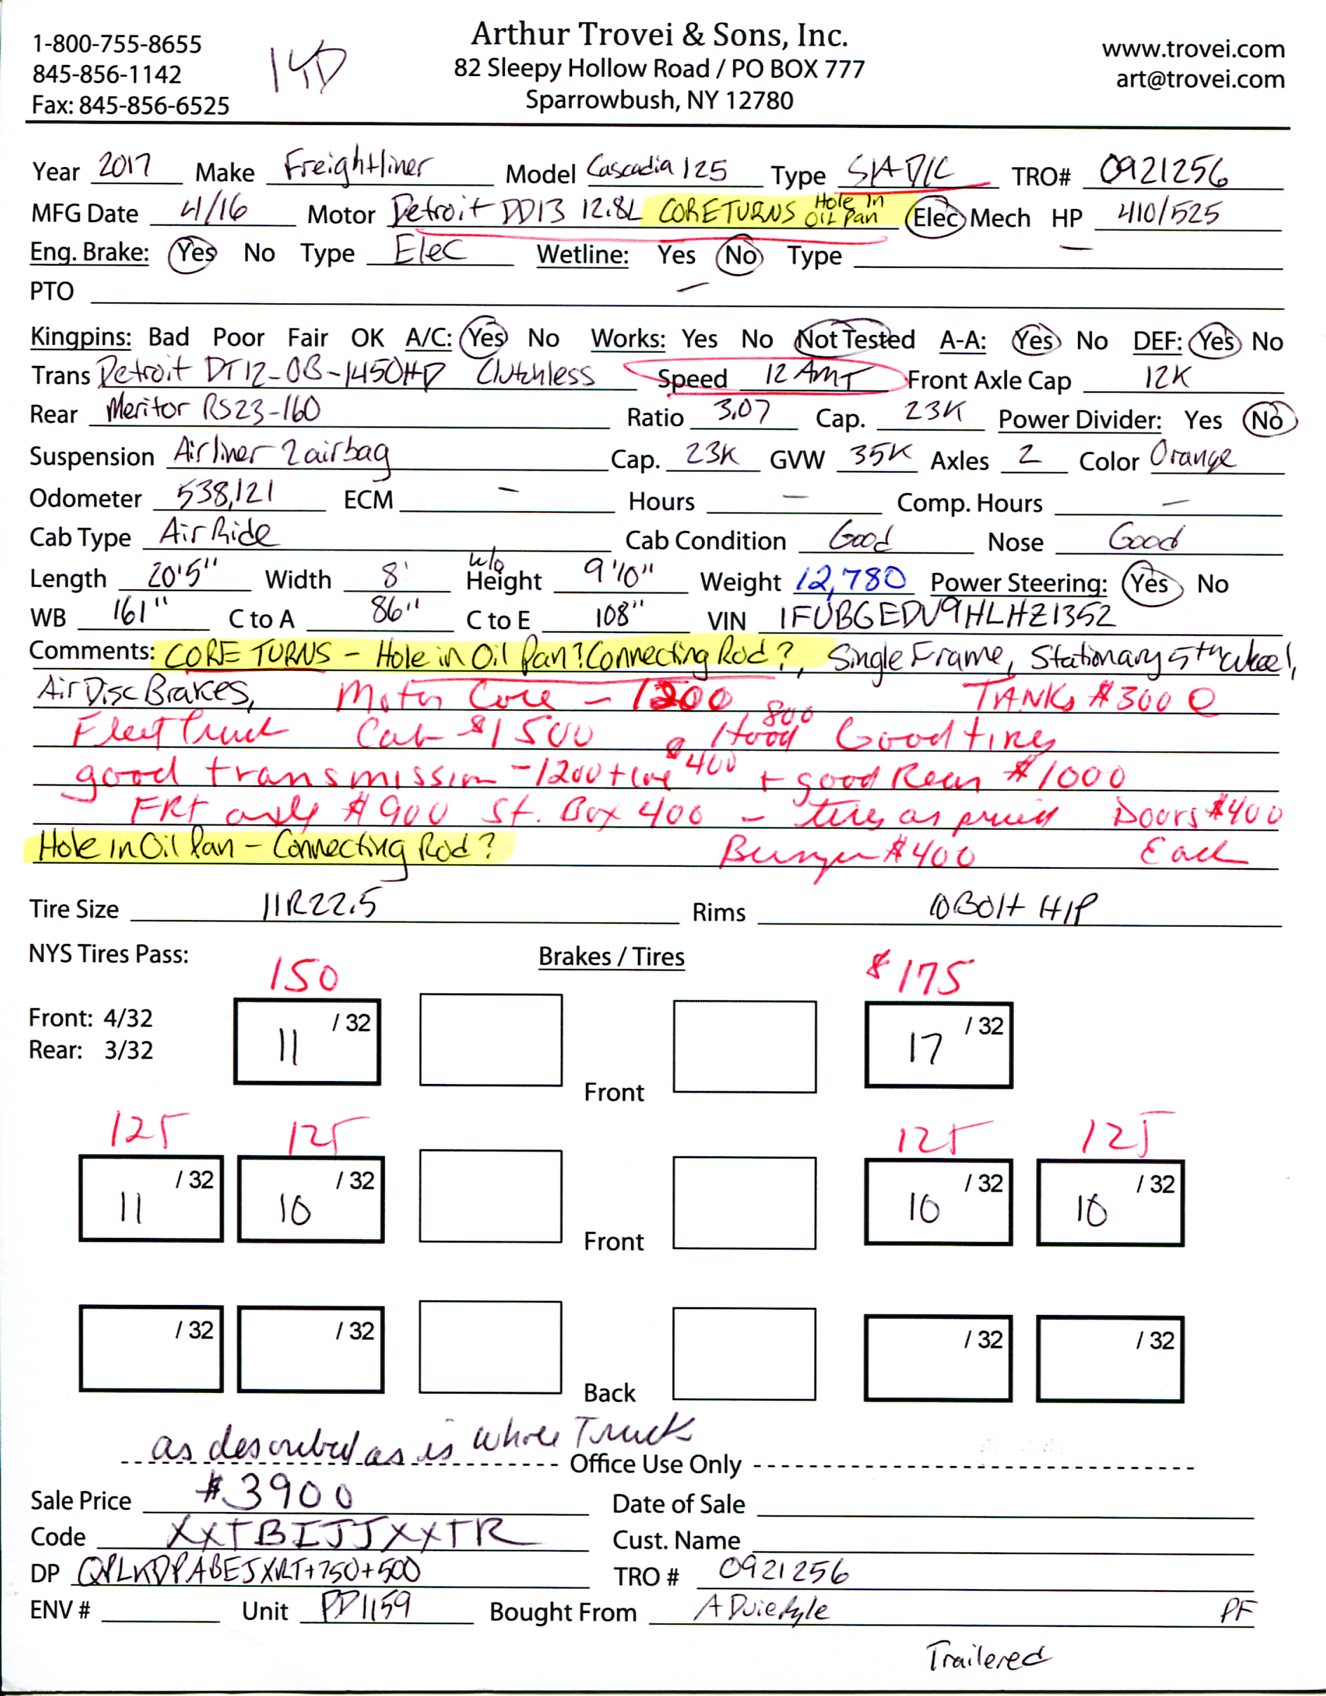 1-800-755-8655
845-856-1142
Fax: 845-856-6525
14D
Arthur Trovei & Sons, Inc.
82 Sleepy Hollow Road / PO BOX 777
Sparrowbush, NY 12780
www.trovei.com
art@trovei.com
Year 2017 Make Freightliner Model Cascadia 125 Type S/A D/C TRO# 0921256
MFG Date 4/16 Motor Detroit DD13 12.8L CORE TURNS Hole in Oil Pan Elec Mech HP 410/525
Eng. Brake: Yes No Type Elec Wetline: Yes No Type —
PTO —
Kingpins: Bad Poor Fair OK A/C: Yes No Works: Yes No Not Tested A-A: Yes No DEF: Yes No
Trans Detroit DT12-OB-1450HD Clutchless Speed 12 AMT Front Axle Cap 12K
Rear Meritor RS23-160 Ratio 3.07 Cap. 23K Power Divider: Yes No
Suspension Airliner 2 airbag Cap. 23K GVW 35K Axles 2 Color Orange
Odometer 538,121 ECM — Hours — Comp. Hours —
Cab Type Air Ride Cab Condition Good Nose Good
Length 20'5" Width 8' w/o Height 9'10" Weight 12,780 Power Steering: Yes No
WB 161" C to A 86" C to E 108" VIN 1FUBGEDV9HLHZ1352
Comments: CORE TURNS - Hole in Oil Pan? Connecting Rod?, Single Frame, Stationary 5th wheel,
Air Disc Brakes, Motor Core - 1200 TANKS $300 e
Fleet Truck Cab $1500 Hood 800 Good tires
good transmission -1200+core $400 + good Rear $1000
FRT axle $900 St. Box 400 - tires as priced Doors $400
Hole in Oil Pan - Connecting Rod? Bumper $400 Each
Tire Size 11R22.5 Rims 10 Bolt H/P
NYS Tires Pass: Brakes / Tires
150 $175
Front: 4/32
Rear: 3/32
11 /32 17 /32
Front
125 125 125 125
11 /32 10 /32 10 /32 10 /32
Front
/ 32 / 32 / 32 / 32
Back
as described as is whole Truck
Office Use Only
Sale Price $3900 Date of Sale
Code XXTBIJJXXTR Cust. Name
DP TRO # 0921256
ENV # Unit PD1159 Bought From PF
Trailered